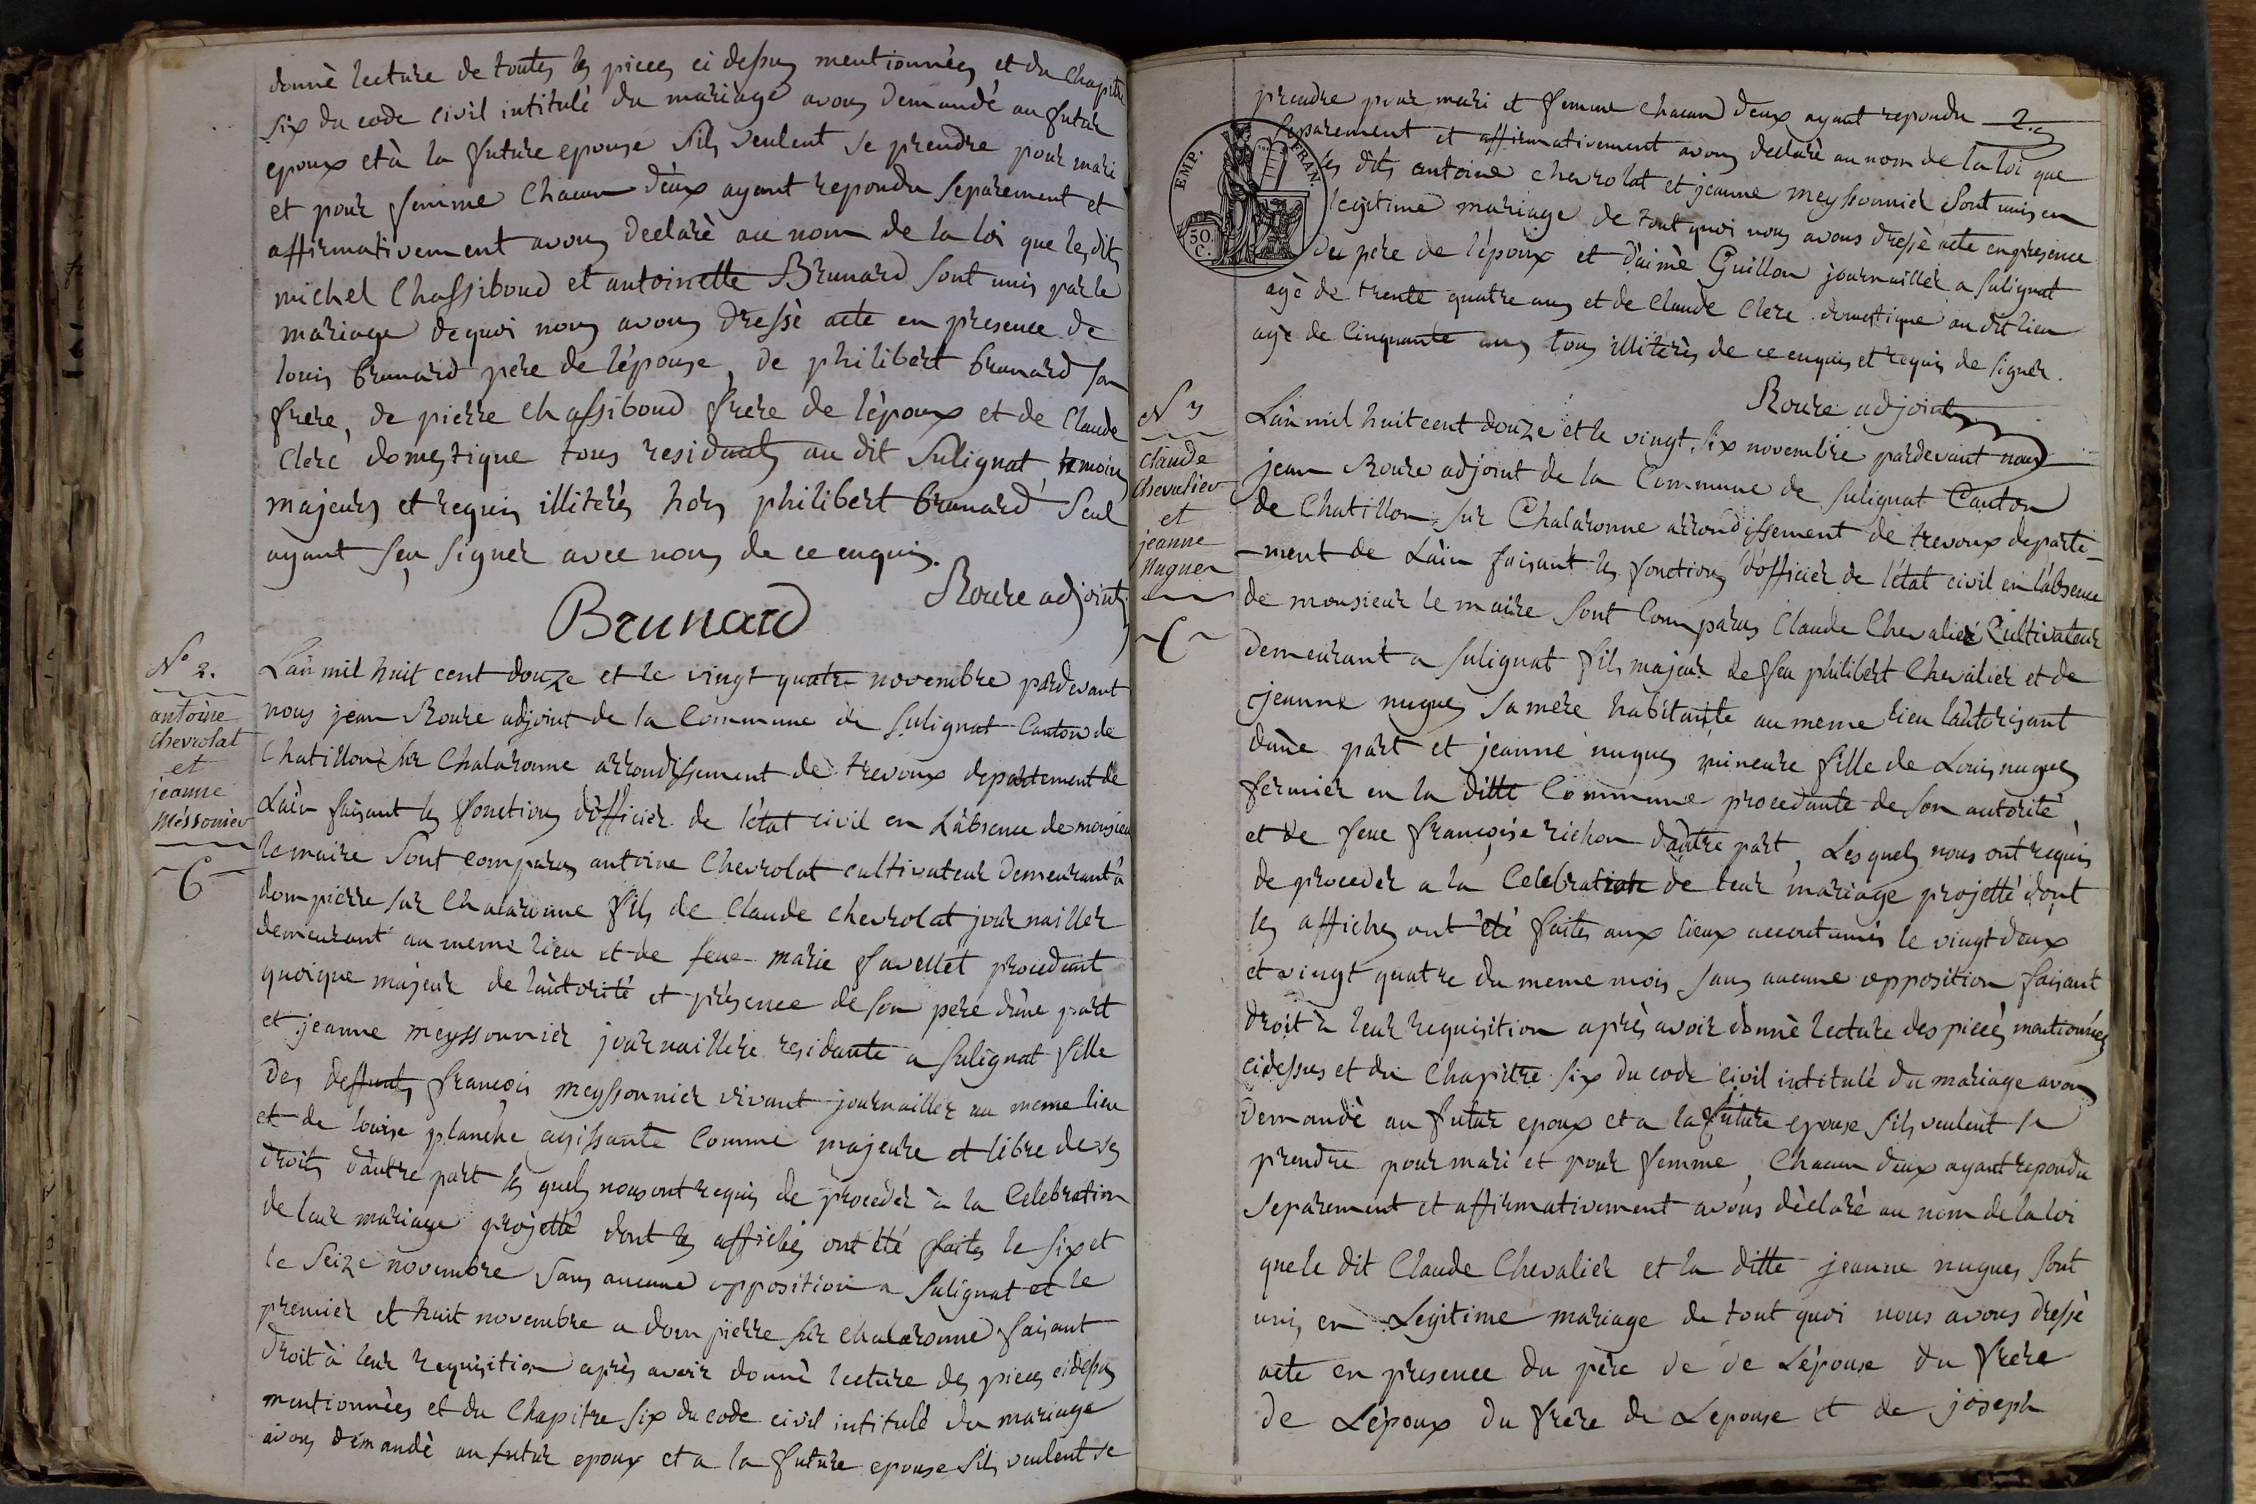 donné lecture de toutes les pieces ci dessus mentionnées et du chapitre
six du code civil intitulé du mariage avons demandé au futur
epoux et à la future epouse s'ils veulent se prendre pour mari
et pour femme chacun d'eux ayant repondu separement et
affirmativement avons declaré au nom de la loi que lesdits
michel Chassiboud et antoinette Brunard sont unis par le
mariage de quoi nous avons dressé acte en presence de
louis brunard pere de l'épouse, de philibert brunard son
frere, de pierre chassiboud frere de l'époux et de Claude
Clerc domestique tous residants au dit Sulignat temoins
majeurs et requis illiterés hors philibert brunard seul
ayant sçu signer avec nous de ce enquis.
Roure adjoint
Brunard
N° 2.
antoine
chevrolat
et
jeanne
Méssonier
L'an mil huit cent douze et le vingt quatre novembre pardevant
nous jean Roure adjoint de la Commune de Sulignat Canton de
Chatillon sur Chalaronne arrondissement de trevoux departement de
L'ain faisant les fonctions d'officier de l'état civil en L'absence de monsieur
le maire sont comparus antoine Chevrolat cultivateur demeurant à
dompierre sur Chalaronne fils de Claude chevrolat journailler
demeurant au meme lieu et de feue marie favellet procedant
quoique majeur de l'autorité et présence de son pere d'une part
et jeanne meyssonnier journaillere residante a Sulignat fille
des deffunts françois meyssonnier vivant journailler au meme lieu
et de louise planche agissante comme majeure et libre de ses
droits d'autre part les quels nous ont requis de proceder à la Celebration
de leur mariage projetté dont les affiches ont été faites le six et
le seize novembre sans aucune opposition a Sulignat et le
premier et huit novembre a dompierre sur chalaronne faisant
droit à leur requisition après avoir donné lecture des pieces cidessus
mentionnées et du Chapitre six du code civil intitulé du mariage
avons demandé au futur epoux et a la future epouse s'ils veulent se
2.e
prendre pour mari et femme chacun d'eux ayant repondu
separement et affirmativement avons declaré au nom de la loi que
les dits antoine chevrolat et jeanne meyssonnier sont unis en
legitime mariage de tout quoi nous avons dressé acte en presence
du pere de l'époux et d'aimé Guillon journailler a Sulignat
agé de trente quatre ans et de Claude Clerc domestique au dit lieu
agé de cinquante ans tous illiterés de ce enquis et requis de signer.
Roure adjoint
EMP. FRAN.
50 C.
N° 3
Claude
Chevalier
et
jeanne
Nugues
L'an mil huit cent douze et le vingt six novembre pardevant nous
jean Roure adjoint de la Commune de Sulignat Canton
de Chatillon sur Chalaronne arrondissement de trevoux departe-
-ment de L'ain faisant les fonctions d'officier de l'état civil en l'absence
de monsieur le maire sont Comparus Claude Chevalier Cultivateur
demeurant a Sulignat fils majeur de feu philibert Chevalier et de
jeanne nugues sa mere habitante au meme lieu l'autorisant
d'une part et jeanne nugues mineure fille de Louis nugues
fermier en la ditte Commune procedante de son autorité
et de feue françoise richon d'autre part, Lesquels nous ont requis
de proceder a la Celebration de leur mariage projetté dont
les affiches ont été faites aux lieux accoutumés le vingt deux
et vingt quatre du meme mois sans aucune opposition faisant
droit à leur requisition après avoir donné lecture des pieces mentionnées
cidessus et du Chapitre six du code civil intitulé du mariage avons
demandé au futur epoux et a la future epouse s'ils veulent se
prendre pour mari et pour femme, Chacun d'eux ayant repondu
separement et affirmativement avons déclaré au nom de la loi
que le dit Claude Chevalier et la ditte jeanne nugues sont
unis en Legitime mariage de tout quoi nous avons dressé
acte en presence du père de de L'épouse du frere
de L'époux du frère de L'epouse et de joseph